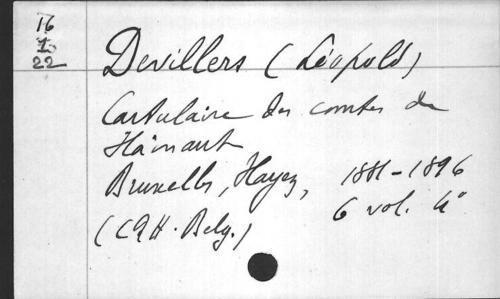 16
I
22
Devillers (Léopold)
Cartulaire des comtes de
Hainaut
Bruxelles, Hayez, 1881-1896
(CRH. Belg.) 6 vol. 4°